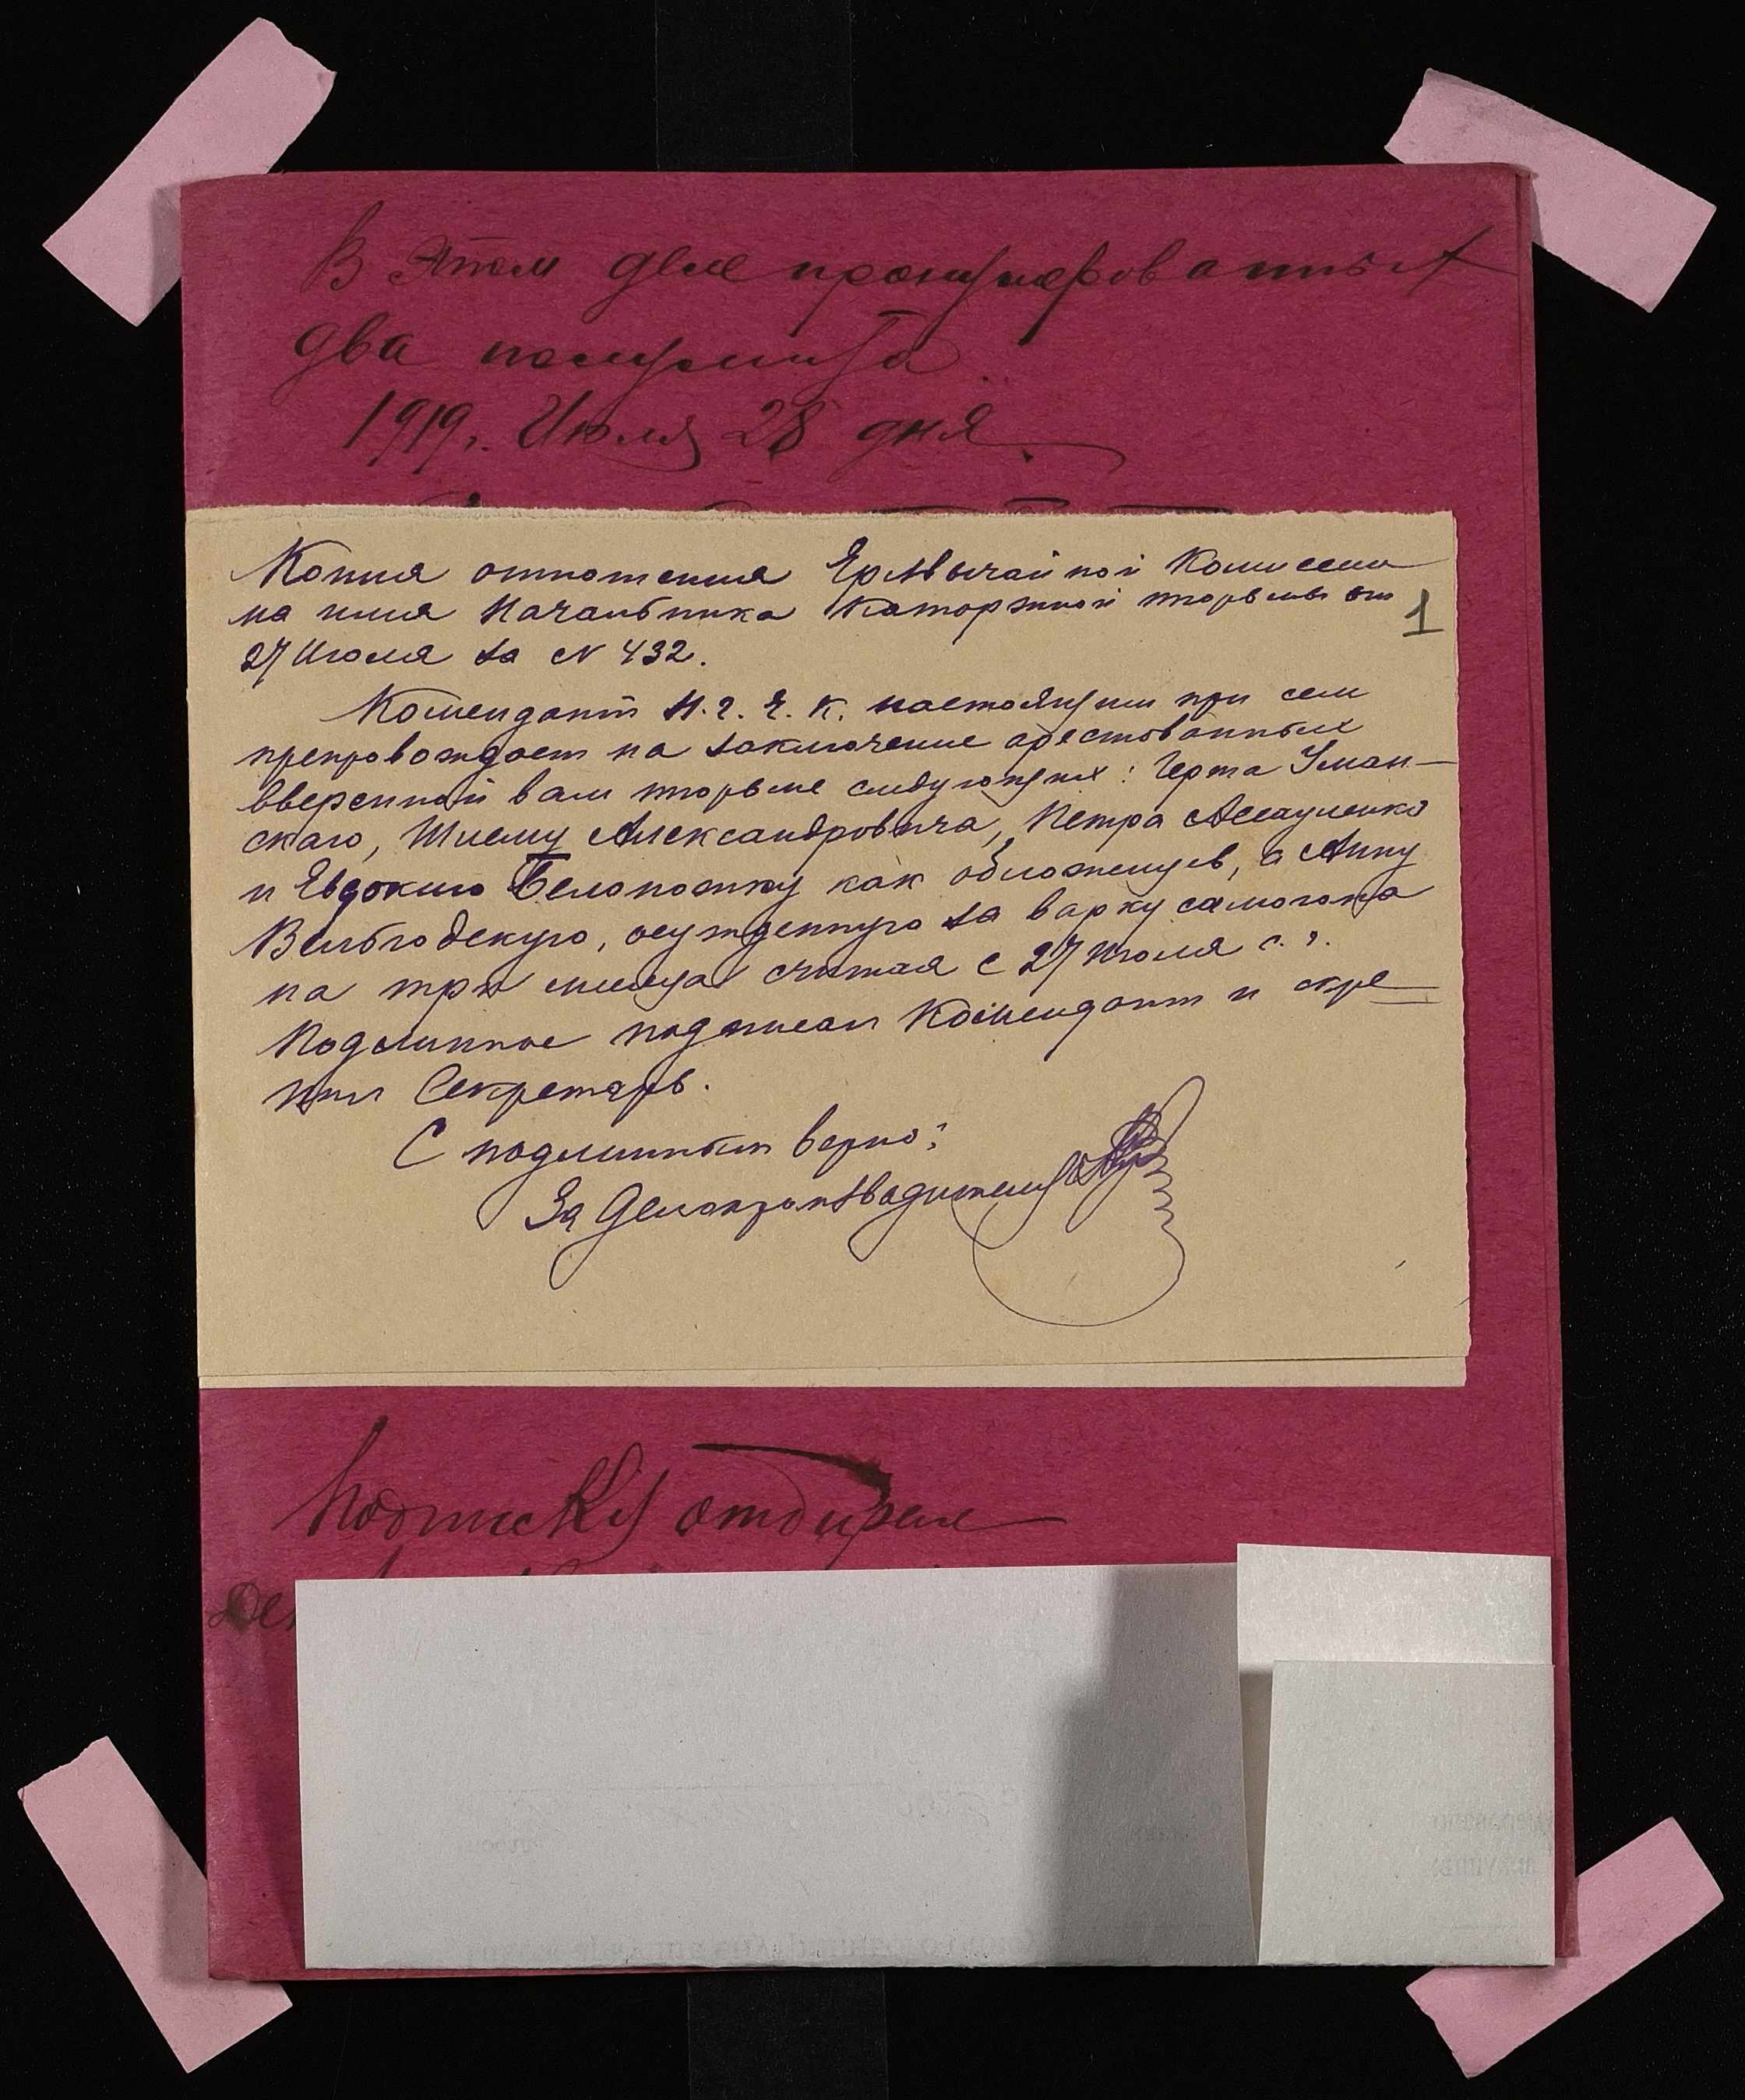 В этом деле пронумерованных
два полулиста
1919 г. Июля 28 дня
Копия отношения Чрезвычайной Комиссии
на имя Начальника Каторжной тюрьмы от
27 Июля за № 432.
1
Комендант Н. г. Ч. К. настоящим при сем
препровождает на заключение арестованных
вверенной вам тюрьме следующих: Герта Уман-
скаго, Шлему Александровича, Петра Ассауленко
и Евдокию Белоножку как обложенцев, а Анну
осужденную за варку самогона
на три месяца считая с 27 Июля с. г.
Подлинное подписал Комендант и скре
пил Секретарь.
С подлинным верно:
За Делопроизводителя
Подписку отбирал